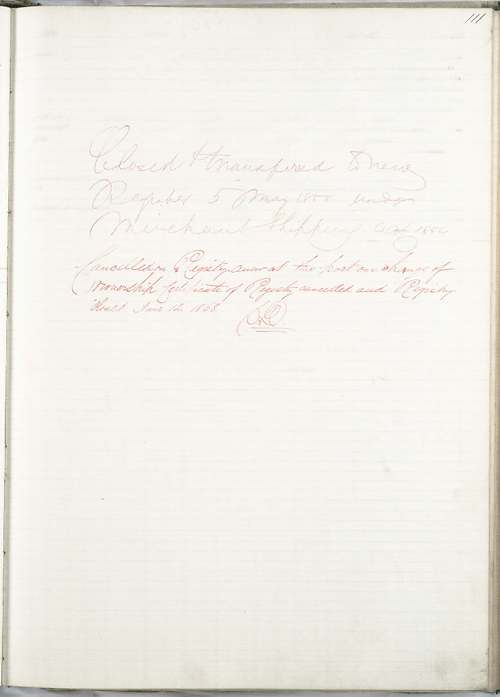 111
Closed & transferred to new
Register 5 May 1855 under
Merchant Shipping Act 1854
Cancelled & Registry anew at this port on change of
ownership Certificate of Registry cancelled and Registry
closed June 12 1858